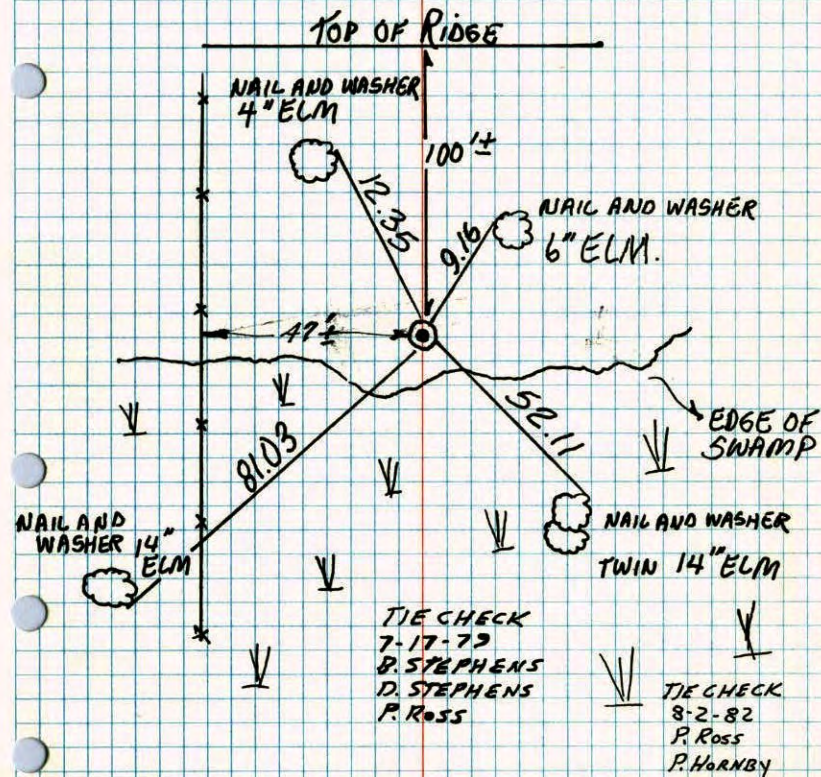 TOP OF RIDGE
NAIL AND WASHER
4" ELM
100'±
12.35
9.16
NAIL AND WASHER
6" ELM.
47'±
81.03
52.11
EDGE OF
SWAMP
NAIL AND
WASHER 14"
ELM
NAIL AND WASHER
TWIN 14" ELM
TIE CHECK
7-17-79
B. STEPHENS
D. STEPHENS
P. ROSS
TIE CHECK
8-2-82
P. ROSS
P. HORNBY